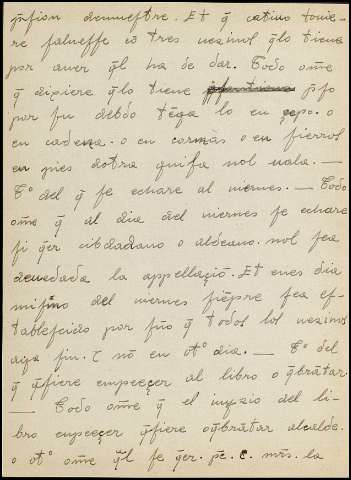 p̃sion demuestre. Et q̃ catiuo touie-
re faluesse cõ tres uezinos q̃lo tiene
por auer q̃l ha de dar. Todo om̃e
q̃ dixiere q̃lo tiene p̃so
por su debdo tẽga lo en çepo. o
en cadena. o en cormas o en fierros
en pies dotra guisa nol uala. —
T.º del q̃ se echare al uiernes. — Todo
om̃e q̃ al dia del uiernes se echare
si q̃er cibdadano o aldeano. nol sea
deuedada la appellaçiõ. Et en es dia
mismo del uiernes siẽpre sea es-
tablescido por fuo q̃ todos los uezinos
aya fin. τ nõ en ot.º dia. — T.º del
q̃ q̃siere empeeçer al libro o q̃brãtar.
— Todo om̃e q̃ el iuyzio del li-
bro enpeeçer q̃siere o q̃brãtar alcalde.
o ot.º om̃e q̃l se q̃er. pe. c. mr̃s. la